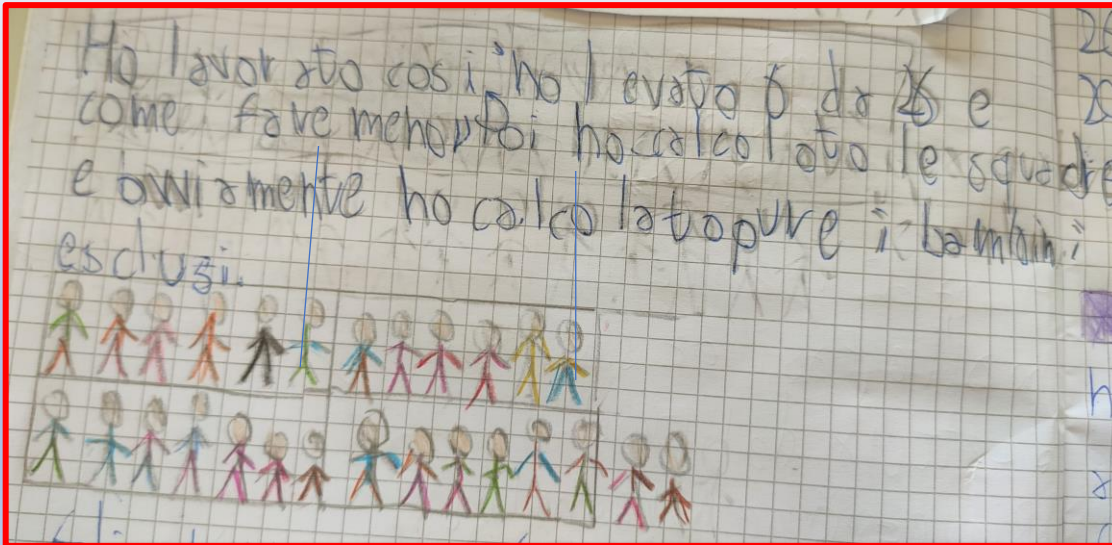 Ho lavorato così ho levato 6 da 26 e
come fare meno poi ho calcolato le squadre
e ovviamente ho calcolato pure i bambini
esclusi.